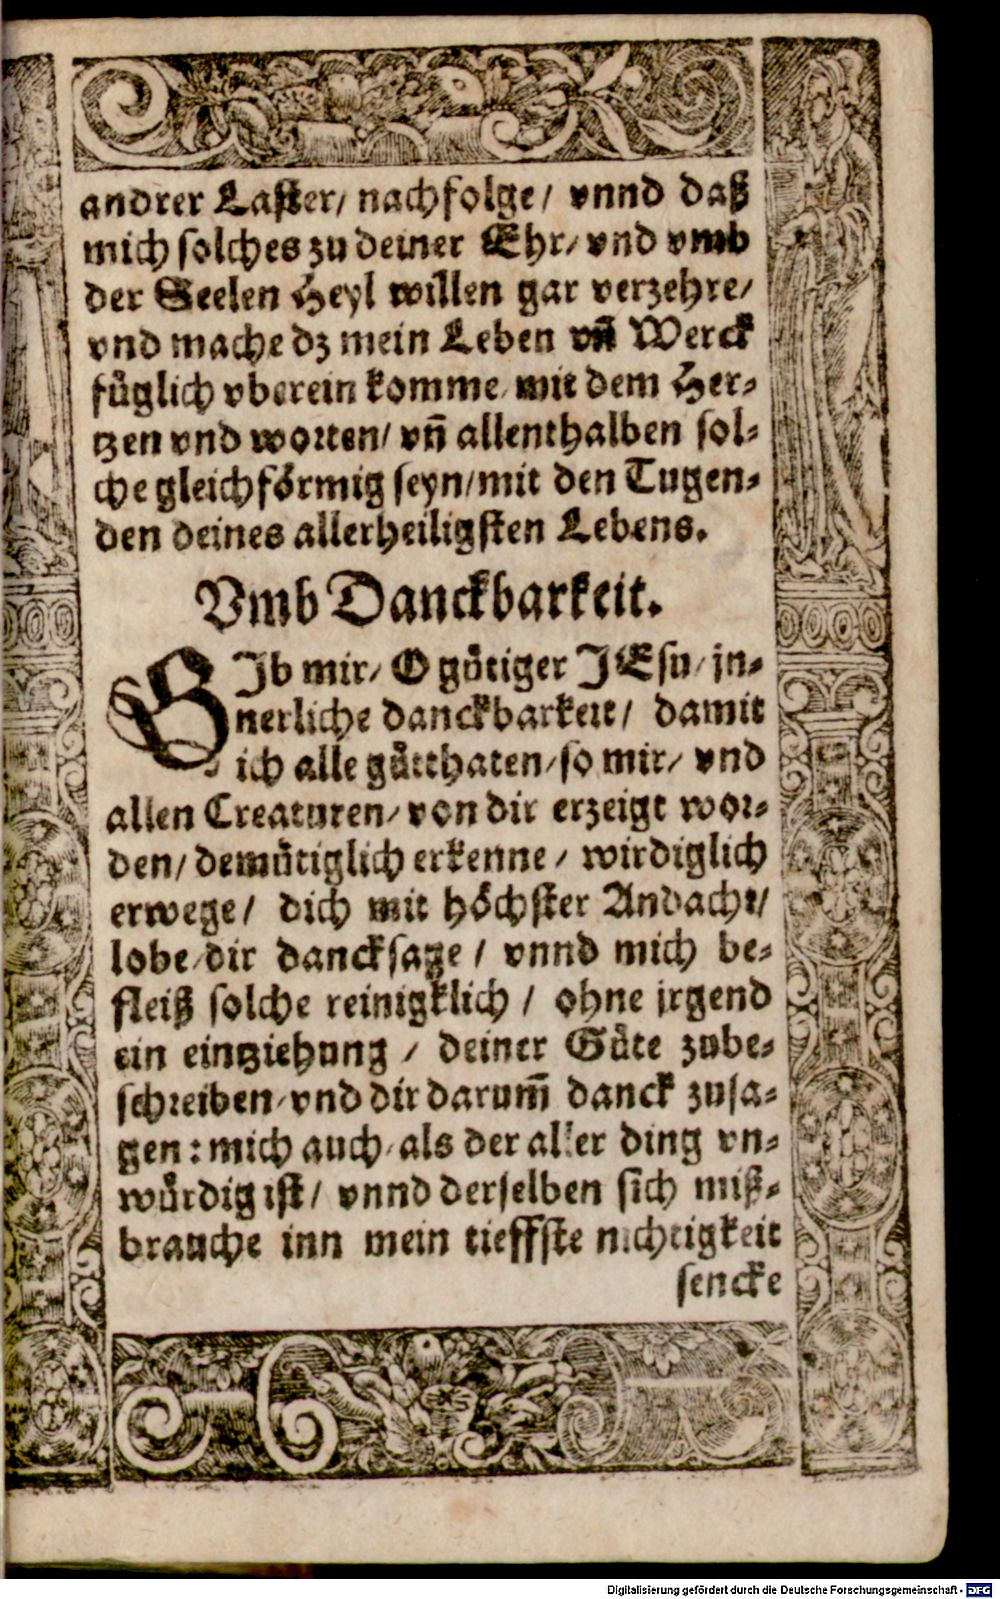 andrer Laster/ nachfolge/ vnnd daß
mich solches zu deiner Ehr/ vnd vmb
der Seelen Heyl willen gar verzehre/
vnd mache dz mein Leben vn̄ Werck
fůglich vberein komme/ mit dem Her⸗
tzen vnd worten/ vn̄ allenthalben sol⸗
che gleichfőrmig seyn/ mit den Tugen⸗
den deines allerheiligsten Lebens.
Vmb Danckbarkeit.
GIb mir/ O gůtiger JEsu/ jn⸗
nerliche danckbarkeit/ damit
ich alle gůtthaten/ so mir/ vnd
allen Creaturen/ von dir erzeigt wor⸗
den/ demůtiglich erkenne/ wirdiglich
erwege/ dich mit hőchster Andacht/
lobe/ dir dancksage/ vnnd mich be⸗
fleiß solche reinigklich/ ohne jrgend
ein eintziehung/ deiner Gůte zube⸗
schreiben/ vnd dir darum̄ danck zusa⸗
gen: mich auch/ als der aller ding vn⸗
wůrdig ist/ vnnd derselben sich miß⸗
brauche inn mein tieffste nichtigkeit
sencke
Digitalisierung gefördert durch die Deutsche Forschungsgemeinschaft - DFG